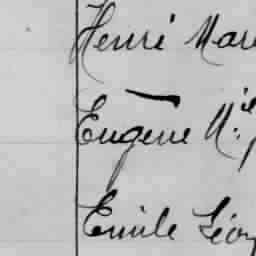 Henri Mar
Eugène N.
Emile Léon